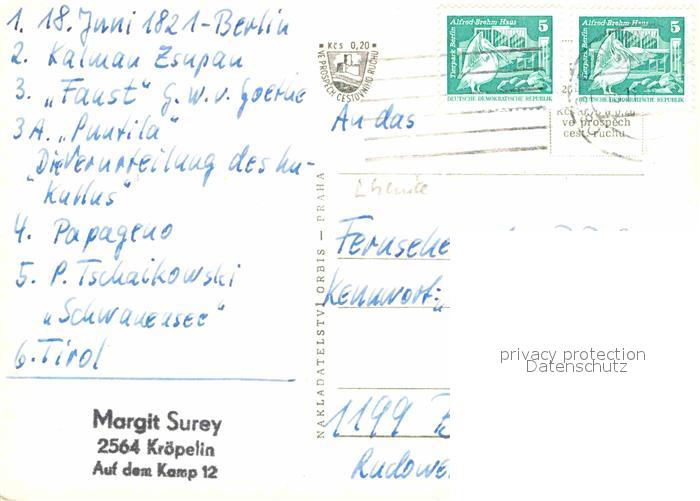 1. 18. Juni 1821-Berlin
2. Kalman Zsupan
3. „Faust" G. W. v. Goethe
3A. „Puntila"
„Die Verurteilung des Lu-
kullus"
4. Papageno
5. P. Tschaikowski
„Schwanensee"
6. Tirol
Margit Surey
2564 Kröpelin
Auf dem Kamp 12
NAKLADATELSTVÍ ORBIS — PRAHA
Kčs 0,20
VE PROSPĚCH CESTOVNÍHO RUCHU
Alfred-Brehm Haus 5
Tierpark Berlin
DEUTSCHE DEMOKRATISCHE REPUBLIK
Alfred-Brehm Haus 5
Tierpark Berlin
DEUTSCHE DEMOKRATISCHE REPUBLIK
ve prospěch
cest. ruchu
An das
Fernsehe
Kennwort: „
1199 B
Rudower
privacy protection
Datenschutz